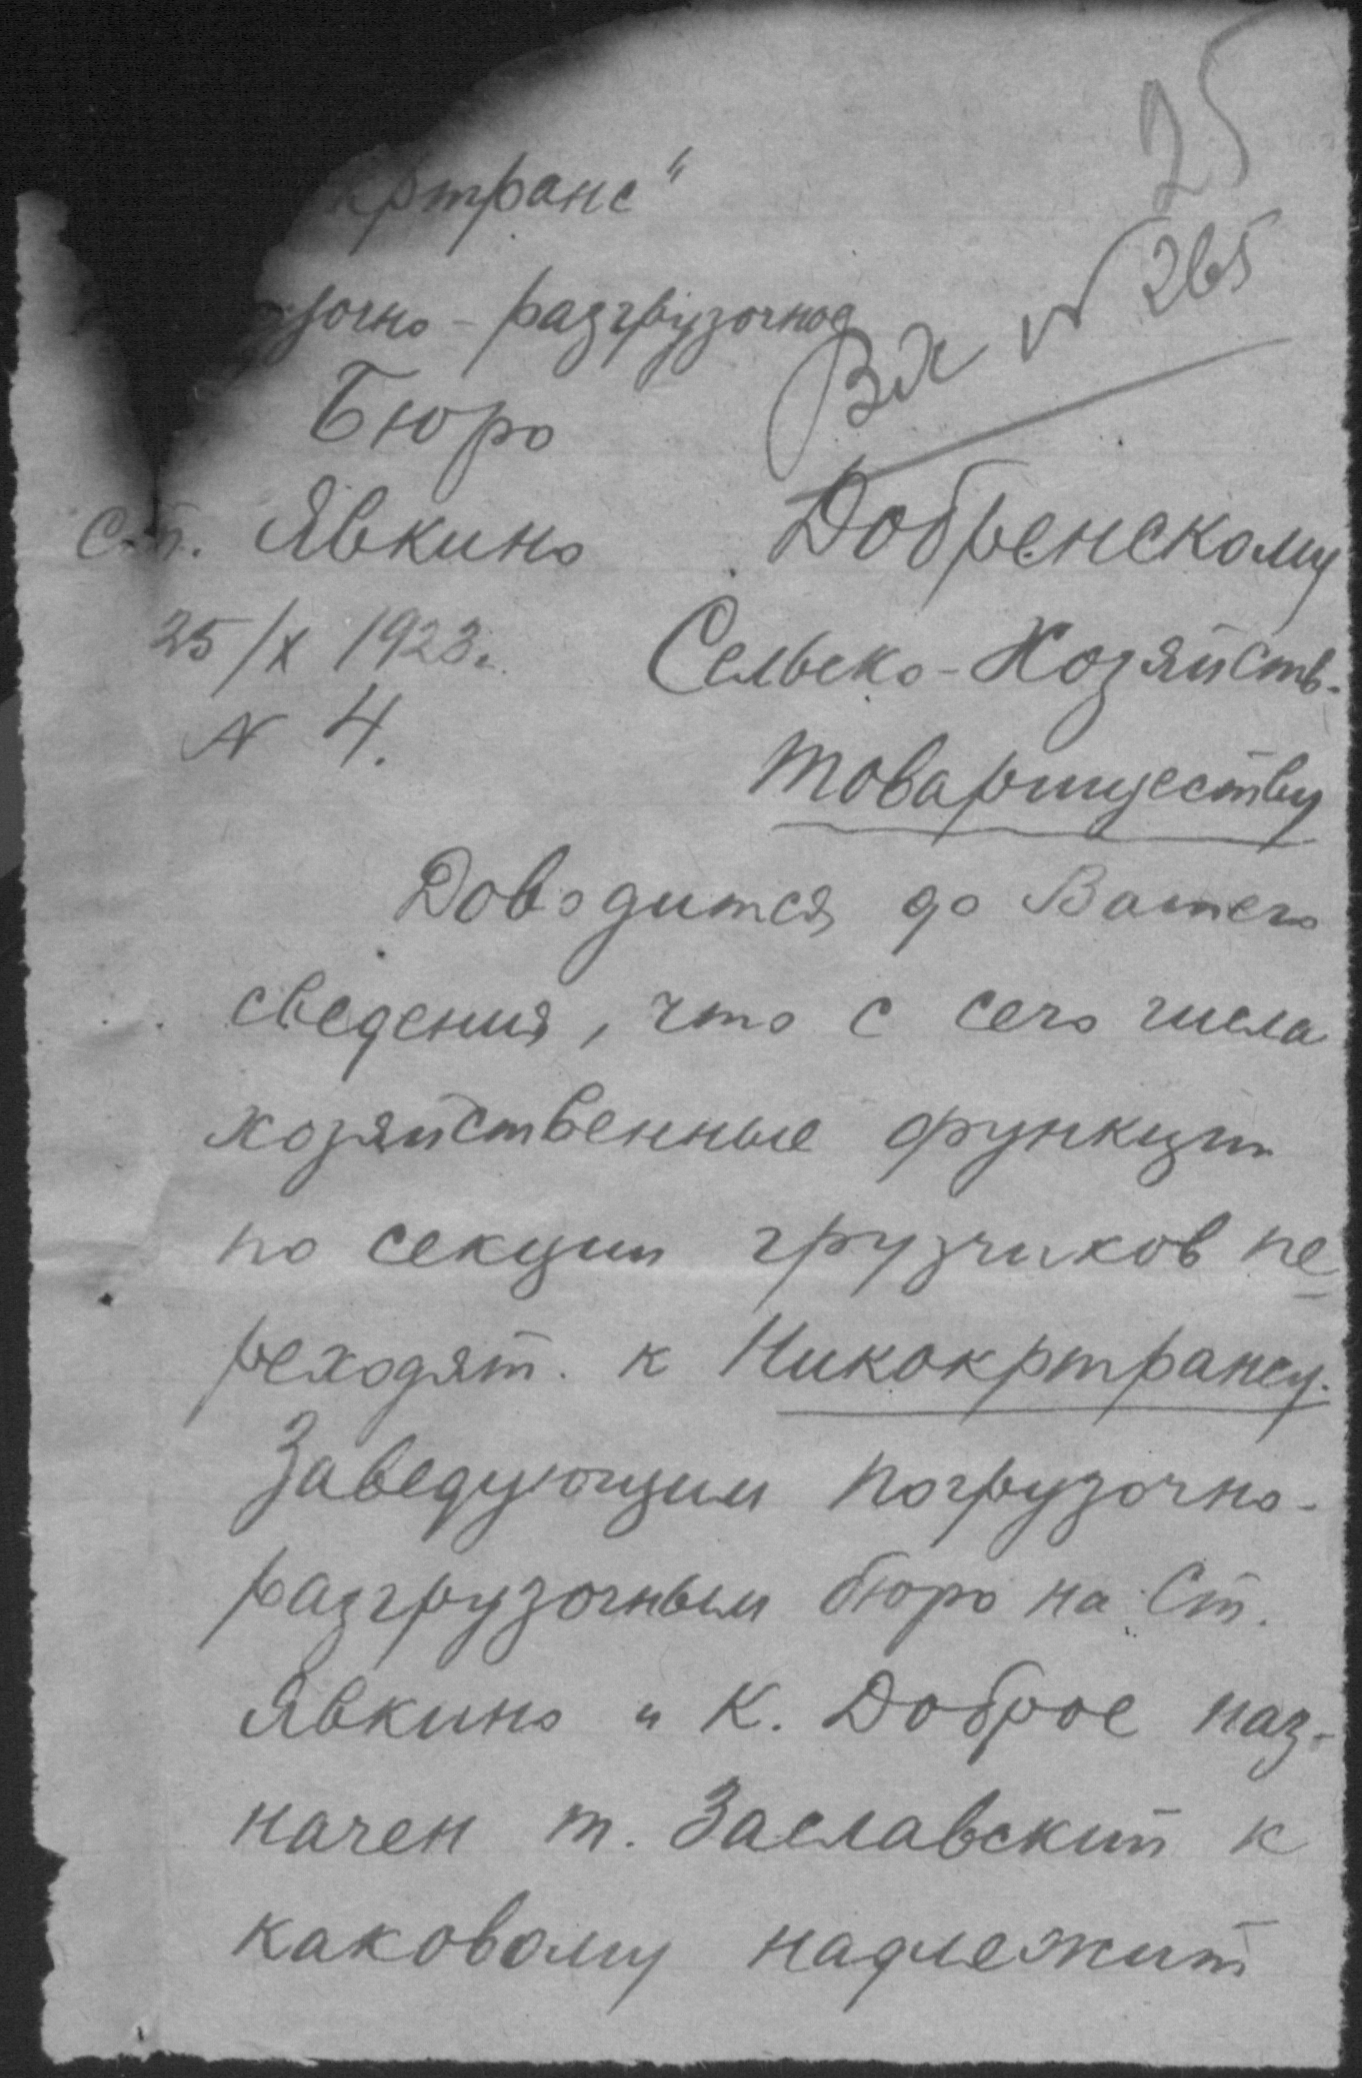 25
кртранс"
зочно - разгрузочное
Вх № 265
Бюро
ст. Явкино
Добренскому
25/X 1923 г.
Сельско-Хозяйств.
№ 4.
Товариществу
Доводится до Вашего
сведения, что с сего числа
хозяйственные функции
по секции грузчиков пе
реходят. к Никокртрансу.
Заведующим погрузочно-
разгрузочным бюро на Ст.
Явкино и К. Доброе наз-
начен т. Заславский к
каковому надлежит